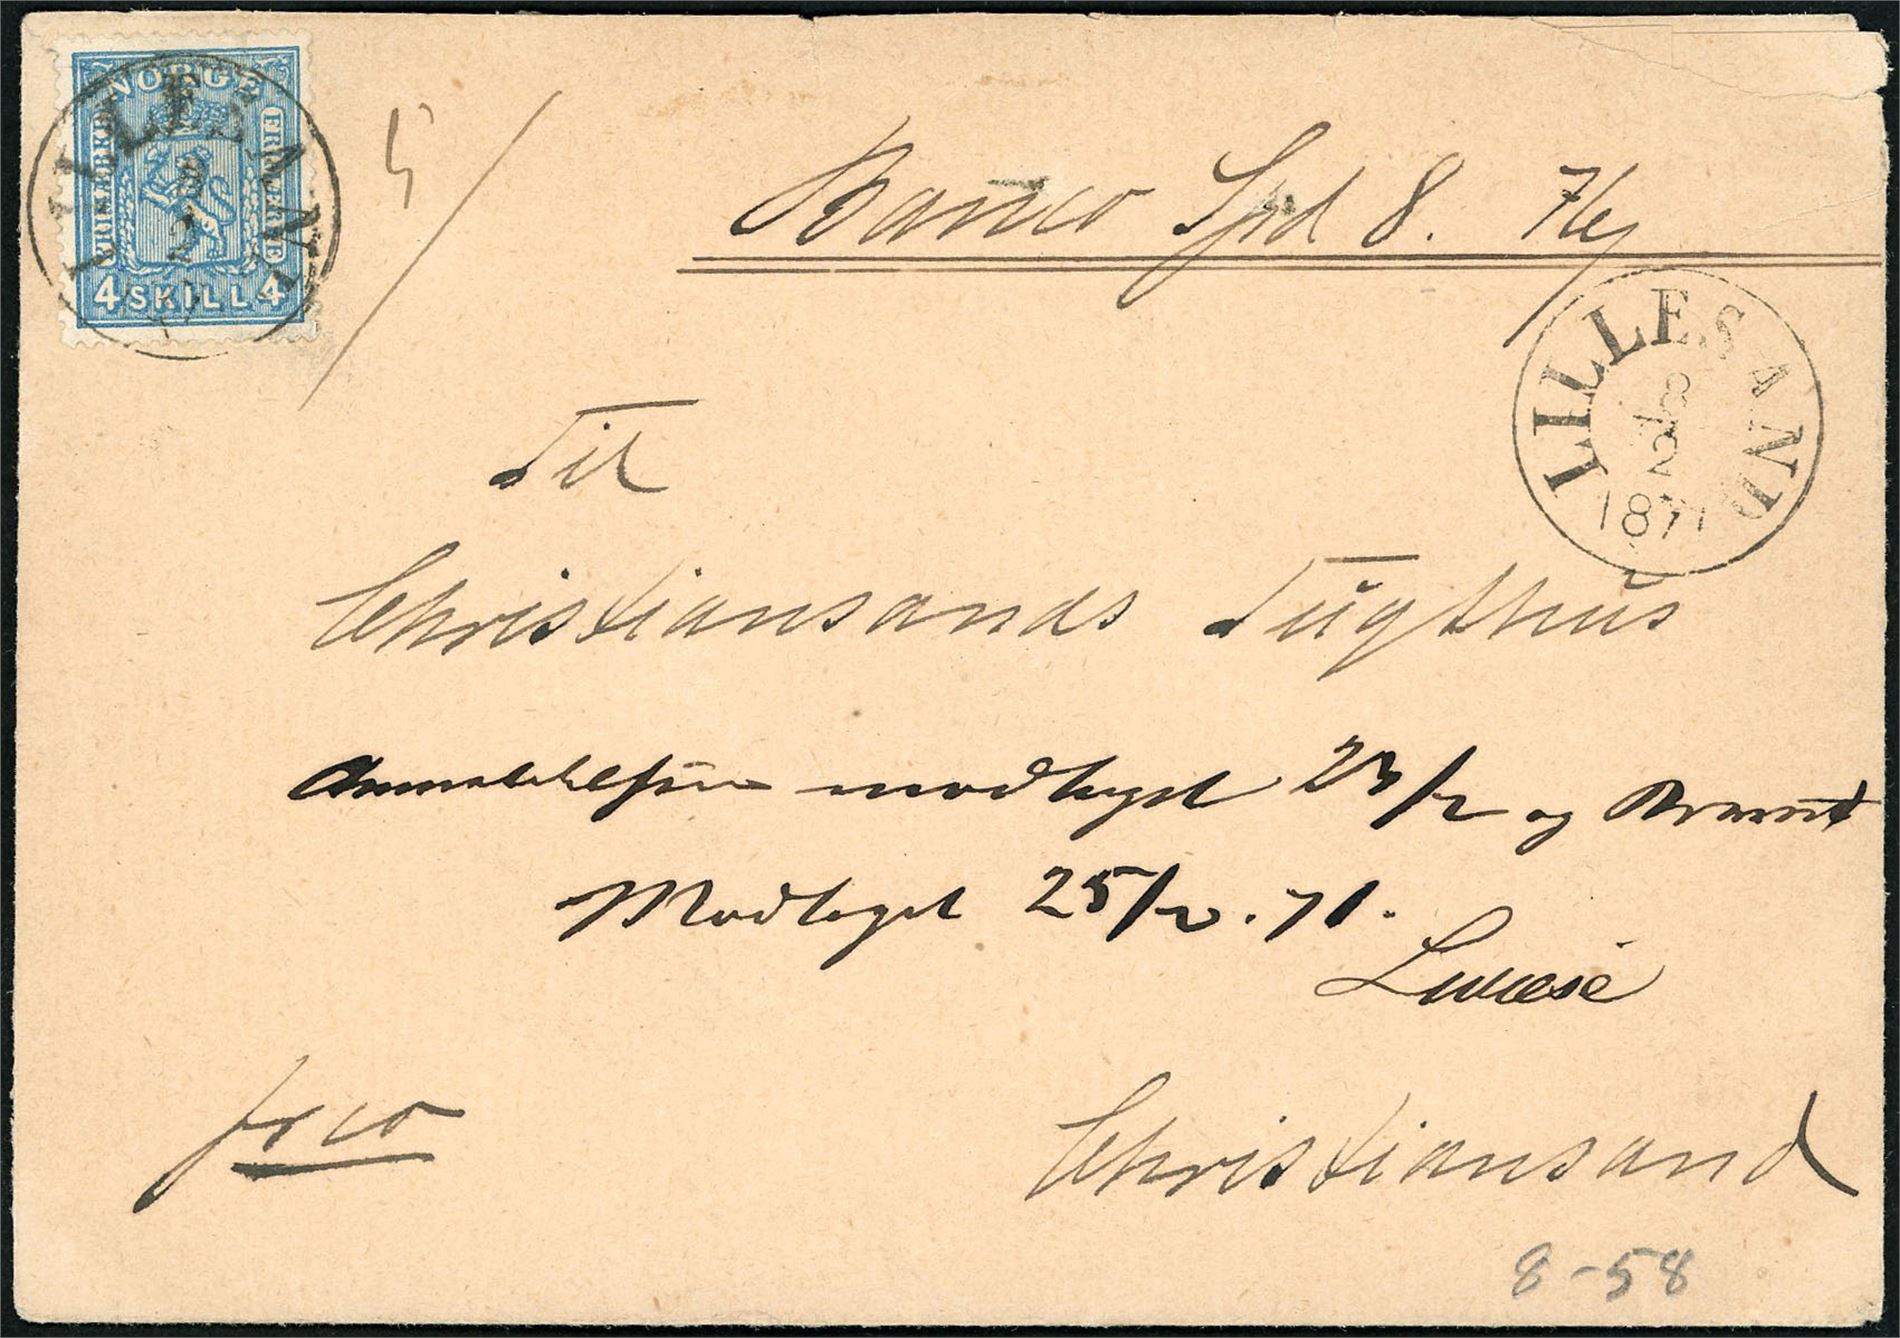 NORGE
FRIMÆRKE
FRIMÆRKE
4 SKILL 4
LILLESAND
5
Banco Spd 8.
LILLESAND
8
2
1871
Til
Christiansands Tugthus
modtaget 23/2 og
Modtaget 25/2.71.
frco
Christiansand
8-58